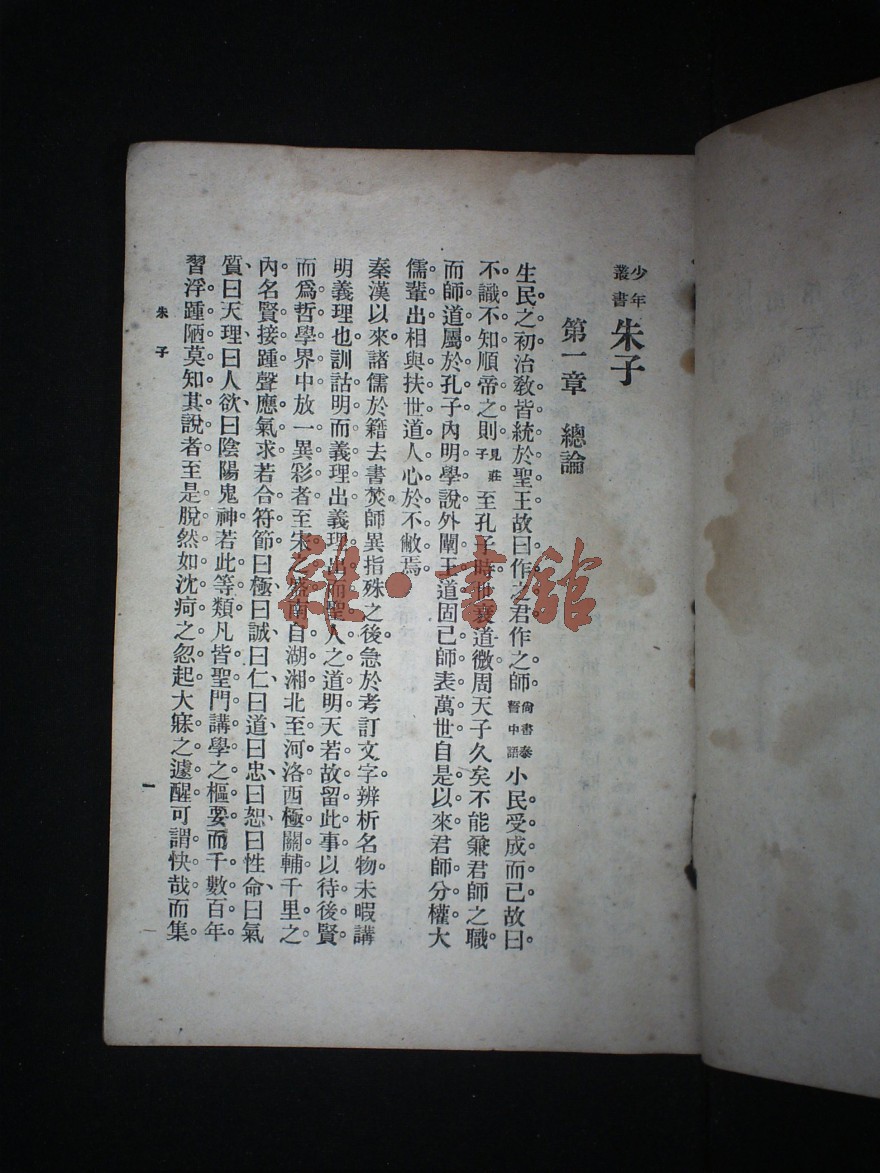 少年叢書 朱子
第一章 總論
生民之初治教皆統於聖王故曰作之君作之師尙書泰誓中語小民受成而已故曰
不識不知順帝之則見莊子至孔子時世衰道微周天子久矣不能兼君師之職
而師道屬於孔子內明學說外闡王道固已師表萬世自是以來君師分權大
儒輩出相與扶世道人心於不敝焉
秦漢以來諸儒於籍去書焚師異指殊之後急於考訂文字辨析名物未暇講
明義理也訓詁明而義理出義理出而聖人之道明天若故留此事以待後賢
而爲哲學界中放一異彩者至宋之盛南自湖湘北至河洛西極關輔千里之
內名賢接踵聲應氣求若合符節曰極曰誠曰仁曰道曰忠曰恕曰性命曰氣
質曰天理曰人欲曰陰陽鬼神若此等類凡皆聖門講學之樞要而千數百年
習浮踵陋莫知其說者至是脫然如沈疴之忽起大寐之遽醒可謂快哉而集
朱子
一
雜·書館